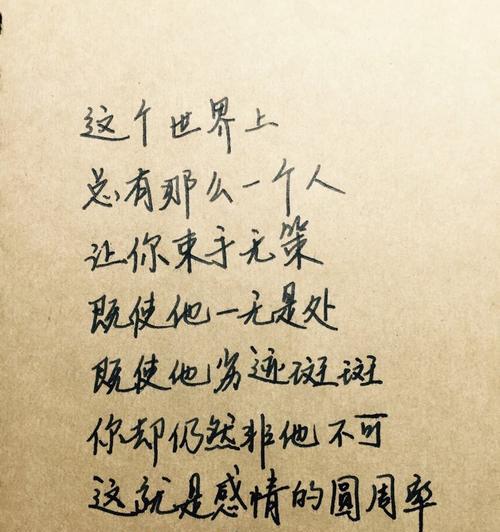 这个世界上
总有那么一个人
让你束手无策
既使他一无是处
既使他劣迹斑斑
你却仍然非他不可
这就是感情的圆周率